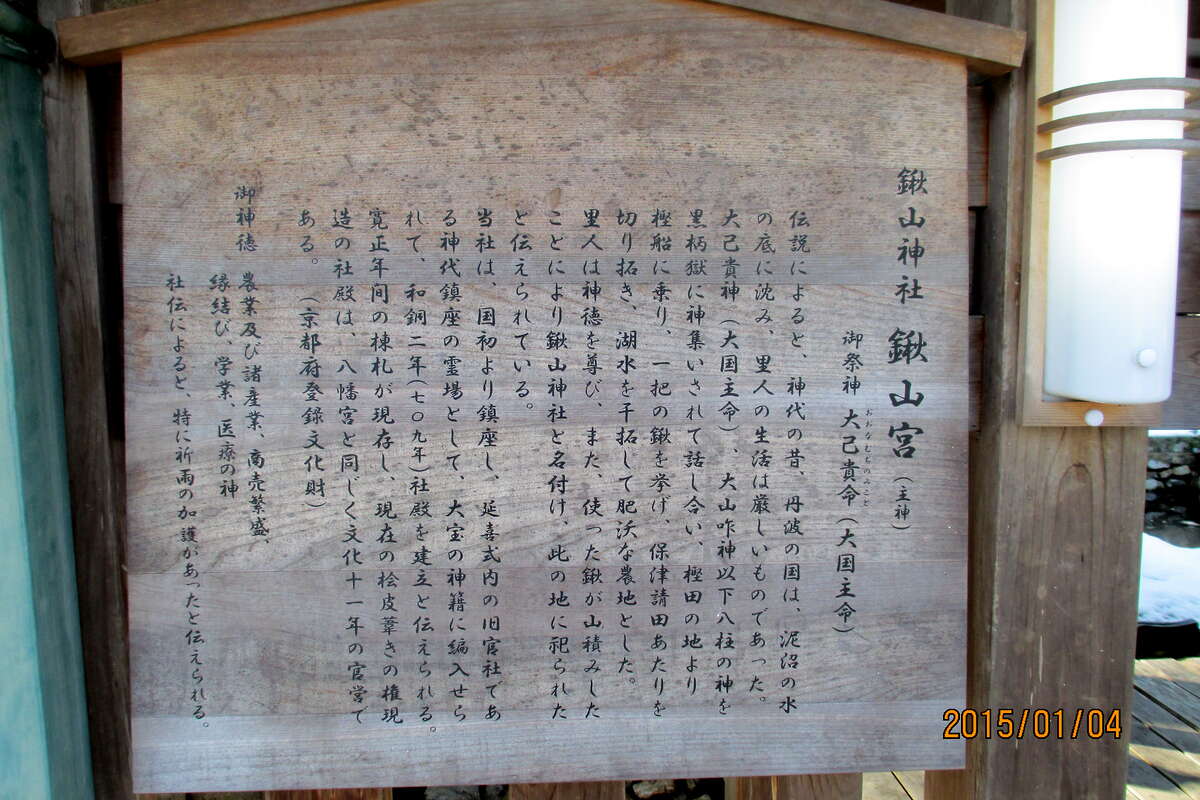 鍬山神社 鍬山宮(主神)
御祭神 大己貴命(大国主命)
おおなむちのみこと
伝説によると、神代の昔、丹波の国は、泥沼の水
の底に沈み、里人の生活は厳しいものであった。
大己貴神(大国主命)、大山咋神以下八柱の神を
黒柄獄に神集いされて話し合い、樫田の地より
樫船に乗り、一把の鍬を挙げ、保津請田あたりを
切り拓き、湖水を干拓して肥沃な農地とした。
里人は神徳を尊び、また、使った鍬が山積みした
ことにより鍬山神社と名付け、此の地に祀られた
と伝えられている。
当社は、国初より鎮座し、延喜式内の旧官社であ
る神代鎮座の霊場として、大宝の神籍に編入せら
れて、和銅二年(七〇九年)社殿を建立と伝えられる。
寛正年間の棟札が現存し、現在の桧皮葺きの権現
造の社殿は、八幡宮と同じく文化十一年の官営で
ある。(京都府登録文化財)
御神徳 農業及び諸産業、商売繁盛、
縁結び、学業、医療の神
社伝によると、特に祈雨の加護があったと伝えられる。
2015/01/04